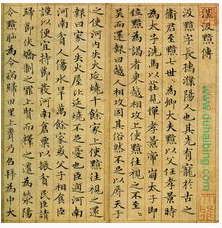 漢汲黯傳
汲黯字長孺濮陽人也其先有寵於古之
衛君至黯七世世為卿大夫黯以父任孝景時
為太子洗馬以莊見憚孝景帝崩太子即
位黯為謁者東越相攻上使黯往視之不至
吳而還報曰越人相攻固其俗然不足以辱天子
之使河內失火延燒千餘家上使黯往視之還
報曰家人失火屋比延燒不足憂也臣過河南
河南貧人傷水旱萬餘家或父子相食臣
謹以便宜持節發河南倉粟以振貧民臣請
歸節伏矯制罪上賢而釋之遷為滎陽令
黯恥為令病歸田里上聞乃召拜為中大
www.dihaibing.com